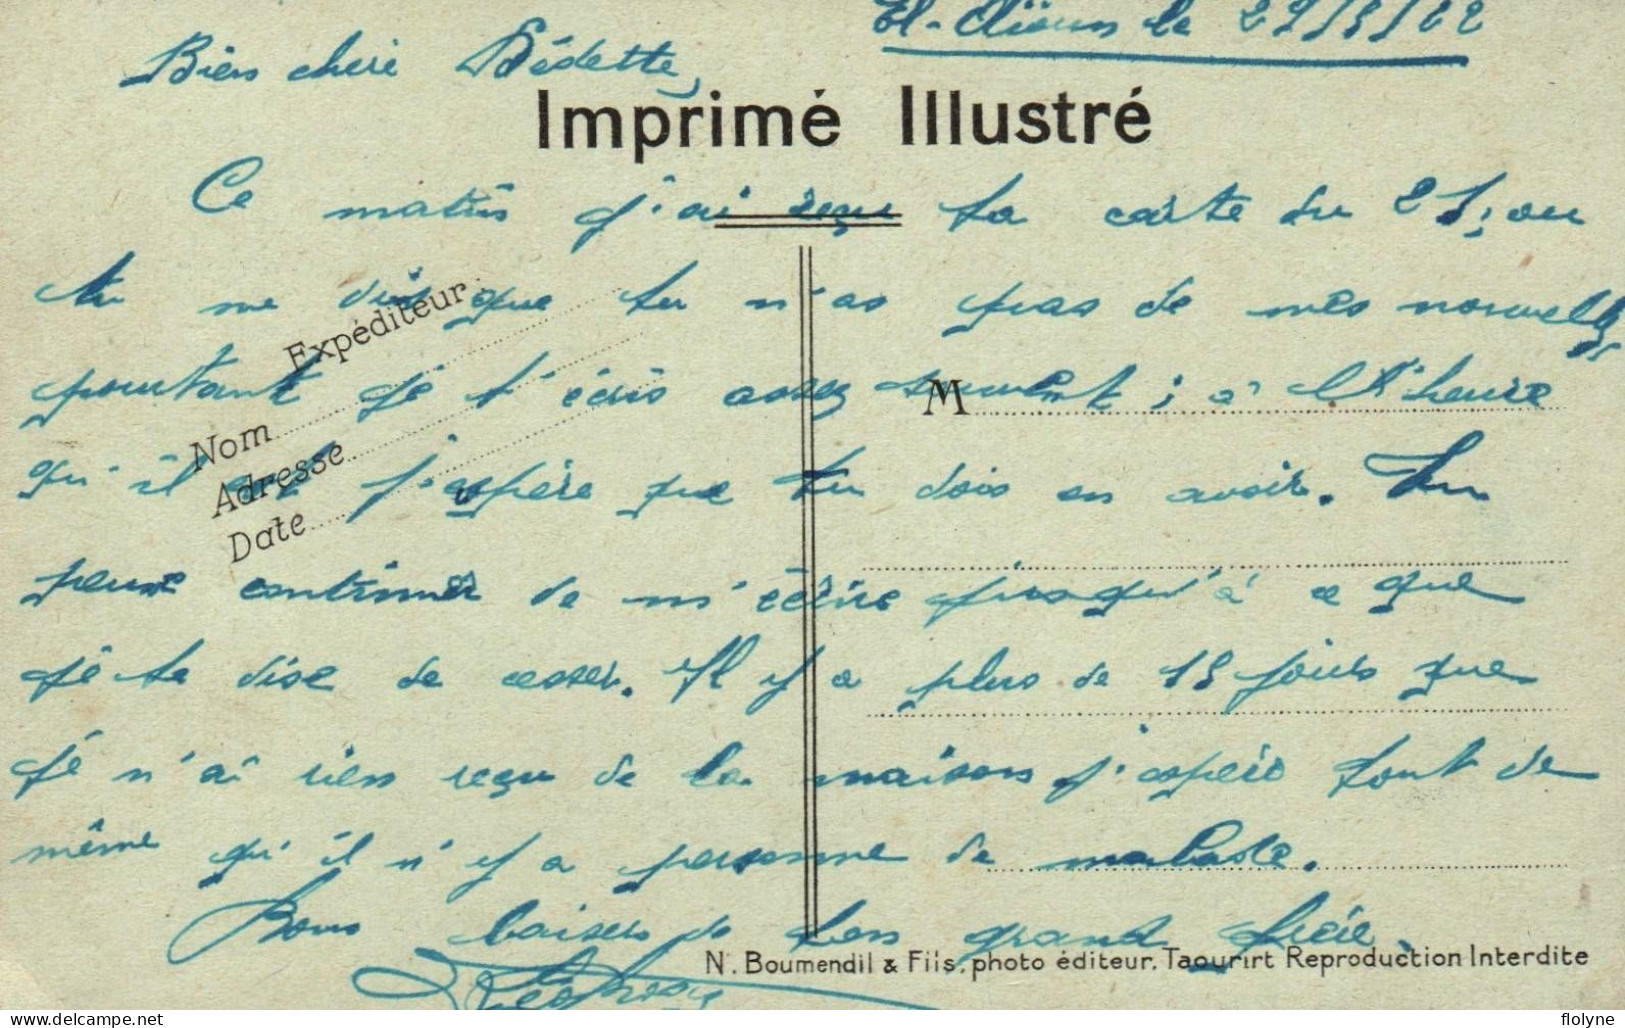 El-Aïoun le 29/3/22
Bien cheri Dédette,
Imprimé Illustré
Ce matin j'ai reçu ta carte du 21, ou
tu me dis que tu n'as pas de mes nouvelles
Expéditeur:
pourtant je t'écris assez souvent ; à l'heure
M
Nom
qu'il est j'espère que tu dois en avoir. Tu
Adresse
Date
peux continuer de m'écrire jusqu'à ce que
je te dise de cesser. Il y a plus de 15 jours que
je n'ai rien reçu de la maison j'espère tout de
même qu'il n'y a personne de malade.
Bons baisers de ton grand frère.
N. Boumendil & Fils, photo éditeur. Taourirt Reproduction Interdite
delcampe.net
flolyne